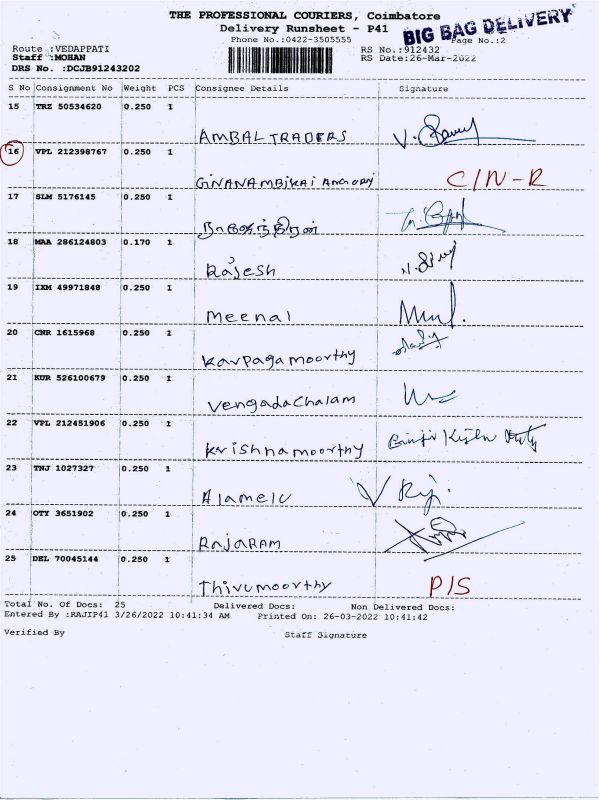 THE PROFESSIONAL COURIERS, Coimbatore
Delivery Runsheet - P41
BIG BAG DELIVERY
Phone No.:0422-3505555
Page No.:2
Route :VEDAPPATI
RS No.:912432
Staff :MOHAN
RS Date:26-Mar-2022
DRS No. :DCJB91243202
S No Consignment No Weight PCS Consignee Details Signature
15 TRZ 50534620 0.250 1
AMBAL TRADERS
16 VPL 212398767 0.250 1
GNANAMBIKAI C/N-R
17 SLM 5176145 0.250 1
நாகேந்திரன்
18 MAA 286124803 0.170 1
Rajesh
19 IXM 49971848 0.250 1
meenal
20 CNR 1615968 0.250 1
Karpagamoorthy
21 KUR 526100679 0.250 1
Vengadachalam
22 VPL 212451906 0.250 1
Krishnamoorthy
23 TNJ 1027327 0.250 1
Alamelu
24 OTY 3651902 0.250 1
RAJARAM
25 DEL 70045144 0.250 1
Thirumoorthy P/S
Total No. Of Docs: 25 Delivered Docs: Non Delivered Docs:
Entered By :RAJIP41 3/26/2022 10:41:34 AM Printed On: 26-03-2022 10:41:42
Verified By Staff Signature